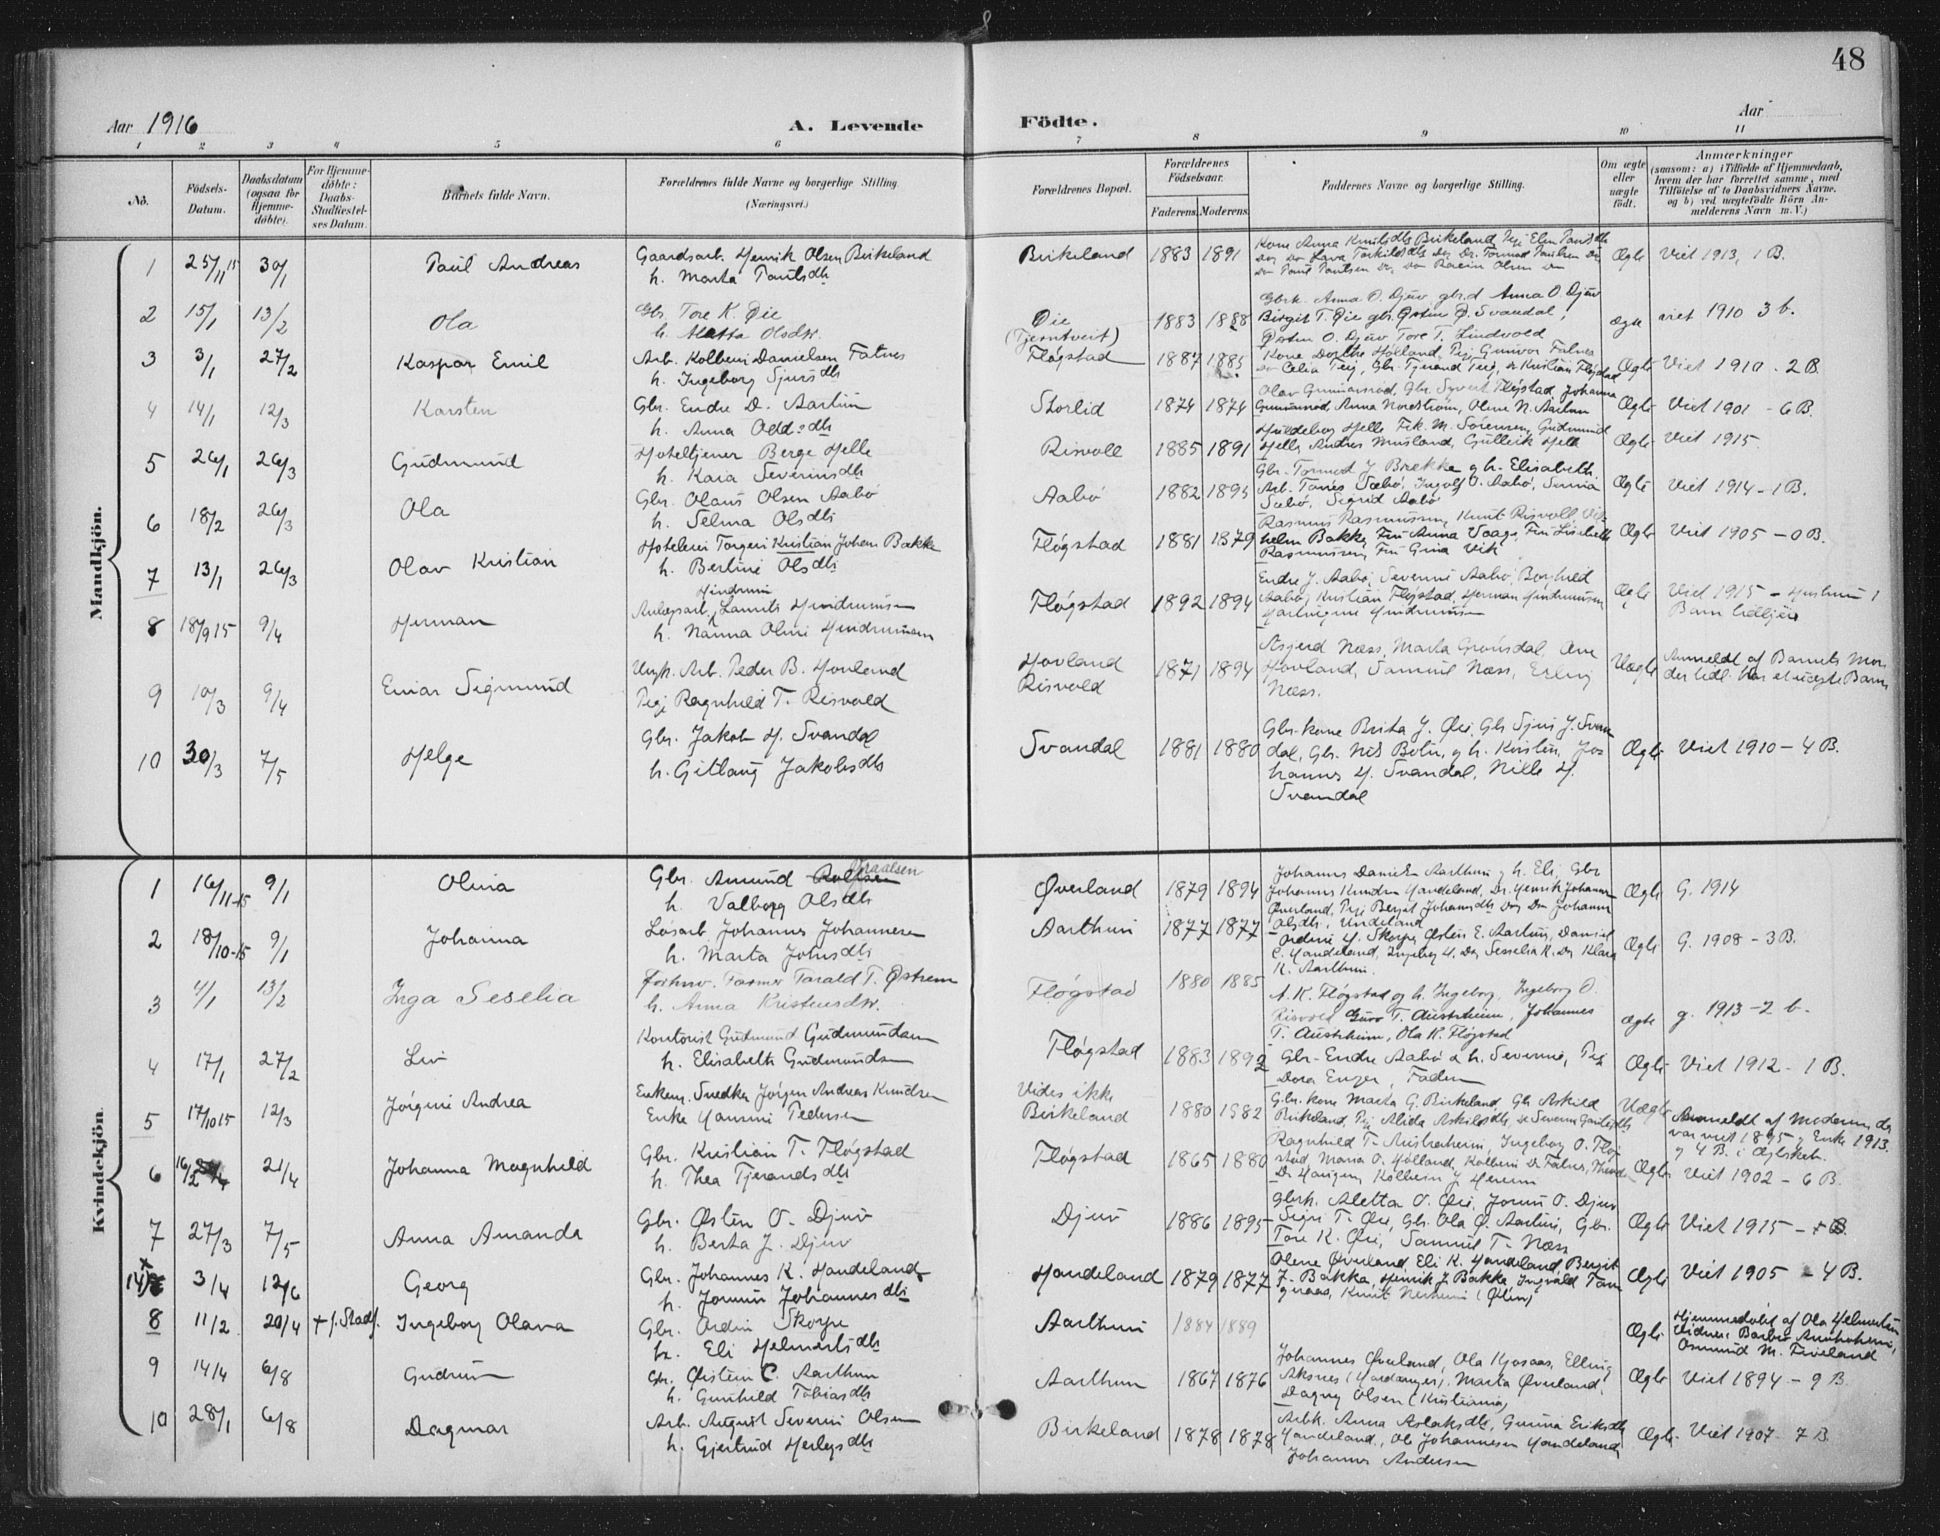 48
Aar 1916
A. Levende
Födte.
Aar
1 2 3 4 5 6 7 8 9 10 11
No.
Födsels-Datum.
Daabsdatum (ogsaa for Hjemme-döbte).
For Hjemme-döbte: Daabs-Stadfæstel-ses Datum.
Barnets fulde Navn.
Forældrenes fulde Navne og borgerlige Stilling (Næringsvei.)
Forældrenes Bopæl.
Forældrenes Födselsaar.
Faderens. Moderens.
Faddernes Navne og borgerlige Stilling.
Om ægte eller uægte födt.
Anmærkninger
(saasom: a) i Tilfælde af Hjemmedaab,
hvem der har forrettet samme, med
Tilföielse af to Daabsvidners Navne,
og b) ved uægtefödte Börn An-
melderens Navn m. V.)
Mandkjön.
1 25/11 15 30/1 Paul Andreas Gaardsarb. Henrik Olsen Birkeland
h. Marta Paulsdtr
Birkeland 1883 1891 Kone Anna Knutsdtr Birkeland, Pige Elen Paulsdtr
Ægte Viet 1913, 1 B.
2 15/1 13/2 Ola Gbr. Tore K. Øie
h. Aletta Olsdtr.
Øie (Tjerntveit) 1883 1888 Gbrk. Anna O. Djuv gbr.d Anna O. Djuv
Birgit T. Øie gbr. Østen Ø. Svandal,
Østen O. Djuv Tore T. Lindvold
ægte viet 1910 3 b.
3 3/1 27/2 Kaspar Emil Arb. Kolbein Danielsen Fatnes
h. Ingeborg Sjursdtr
Fløgstad 1887 1885 Kone Dorthe Hølland, Pige Gunvor Fatnes
Ægte Viet 1910 - 2 B.
4 14/1 12/3 Karsten Gbr. Endre D. Aartun
h. Anna Oddsdtr
Storlid 1874 1874 Olav Gunnarsrod, Gbr. Syvert Fløgstad, Johanna
Gunnarsrod, Anna Nordstrøm, Olene N. Aartun
Ægte Viet 1901 - 6 B.
5 26/1 26/3 Gudmund Hoteltjener Berge Helle
h. Kaia Severinsdtr
Risvoll 1885 1891 Huldeborg Helle Frk. M. Sørensen, Gudmund
Helle, Andres Musland, Gulleik Helle
Ægte Viet 1915.
6 18/2 26/3 Ola Gbr. Olaus Olsen Aabø
h. Selma Olsdtr
Aabø 1882 1895 Gbr. Tormod J. Brekke og h. Elisabeth
Sæbø, Sigrid Aabø
Ægte Viet 1914 - 1 B.
7 13/1 26/3 Olav Kristian Hoteleier Torgeir Kristian Johan Bakka
h. Bertine Olsdtr
Fløgstad 1881 1879 Rasmus Rasmussen, Knut Risvoll, Vil-
helm Bakke, Frk Anna Vaage, Frk Lisebeth
Rasmussen, Frk Gina Vik
Ægte Viet 1905 - 0 B.
8 18/9 15 9/4 Herman Anlægsarb. Laurits Hindrum
h. Nanna Oline Hindrumsen
Fløgstad 1892 1894 Endre J. Aabø, Severine Aabø, Borghild
Aabø, Kristian Fløgstad, Herman Hindrumsen
Ægte Viet 1915 - Hustruen 1
Barn tidligere
9 10/3 9/4 Einar Sigmund Ungk. Arb. Peder B. Hovland
Pige Ragnhild T. Risvold
Hovland
Risvold 1871 1894 Asgerd Næss, Marta Grønsdal, Ane
Hovland, Samuel Næss, Erling
Næss.
Uægte Anmeldt af Barnets Mo-
der tidl. har et uægte Barn
10 30/3 7/5 Helge Gbr. Jakob H. Svandal
h. Gitlaug Jakobsdtr
Svandal 1881 1880 Gbr.kone Brita J. Øie, Gbr Sjur J. Svan
dal, Gbr. Nils Botn, og h. Kristen, Jo-
hannes H. Svandal, Nille H.
Svandal
Ægte Viet 1910 - 4 B.
Kvindekjön.
1 16/11-15 9/1 Olivia Gbr. Amund Graalsen
h. Valborg Olsdtr
Øverland 1879 1894 Johannes Danielsen Aarthun og h. Eli, Gbr
Johannes Knudsen Handeland, Dr. Henrik Johannes
Øverland, Pige Bergit Johannsdtr
Olsdtr, Undeland
Ægte G. 1914
2 18/10-15 9/1 Johanna Løsarb Johannes Johannesen
h. Marta Johnsdtr
Aarthun 1877 1877 Ordine H. Skorpe, Østen E. Aartun, Daniel
E. Handeland, Ingeborg H. Dr Sesselia K. Dr Klara
K. Aarthun.
Ægte G. 1908 - 3 B.
3 4/1 13/2 Inga Seselia forhv. Farmer Tarald T. Østrem
h. Anna Kristensdtr.
Fløgstad 1880 1885 A. K. Fløgstad og h. Ingeborg, Ingeborg O.
Risvold Guro T. Austrheim, Johannes
T. Austrheim, Ola K. Fløgstad
ægte g. 1913 - 2 b.
4 17/1 27/2 Liv Kontorist Gudmund Gudmundsen
h. Elisabeth Gudmundsen
Fløgstad 1883 1892 Gbr. Endre Aabø & h. Severine, Pige
Dora Enger, Faderen
Ægte Viet 1912 - 1 B.
5 17/10 15 12/3 Jørgine Andrea Enkem. Snedker Jørgen Andreas Knudsen
Enke Hanna Pedersen
Vides ikke
Birkeland 1880 1882 Gbr. kone Marta G. Birkeland, Gbr Askild
Birkeland, Pige Alida Askildsdtr
Uægte Anmeldt af Moderen der
var viet 1895 og Enke 1913.
og 4 B. i Ægtesk.
6 16/2 21/4 Johanna Magnhild Gbr. Kristian T. Fløgstad
h. Thea Tjerandsdtr
Fløgstad 1865 1880 Ragnhild T. Austrheim, Ingeborg O. Fløg
stad, Maria O. Hølland, Kolbein Dr Fatnes
Ægte Viet 1902 - 6 B.
7 27/3 7/5 Anna Amanda Gbr. Østen O. Djuv
h. Berta J. Djuv
Djuv 1886 1895 Gbrk. Aletta O. Øie, Jorun O. Djuv
Sigri T. Øie, Gbr. Ola Ø. Aartun, Gbr.
Tore K. Øie, Samuel T. Næss
Ægte Viet 1915 - + B.
14/ 3/4 12/6 Georg Gbr. Johannes K. Handeland
h. Jorunn Johannesdtr
Handeland 1879 1877 Olene Øverland, Eli K. Handeland, Bergit
J. Bakka, Henrik J. Bakka, Ingvald
Knut Nerheim (Ølen)
Ægte Viet 1905 - 4 B.
8 11/2 20/4 + f. Stadf. Ingeborg Olava Gbr. Ordin Skorpe
h. Eli Helmersdtr
Aarthun 1884 1889 Ægte Hjemmedøbt af Ola Helmertsen
Vidner: Barbro Austrheim,
Osmund M. Fiveland
9 14/4 6/8 Gudrun Gbr. Østein C. Aarthun
h. Gunhild Tobiasdtr
Aarthun 1867 1876 Johannes Øverland, Ola Kjosaas, Elling
Aksnes (Hardanger), Marta Øverland,
Dagny Olsen (Kristiania)
Ægte Viet 1894 - 9 B.
10 28/1 6/8 Dagmar Arb. August Severin Olsen
h. Gjertrud Herlegsdtr
Birkeland 1878 1878 Arbk. Anna Aslaksdtr, Gunna Eriksdtr
Handeland, Ole Johannesen Handeland
Johannes Andersen
Ægte Viet 1907 - 7 B.